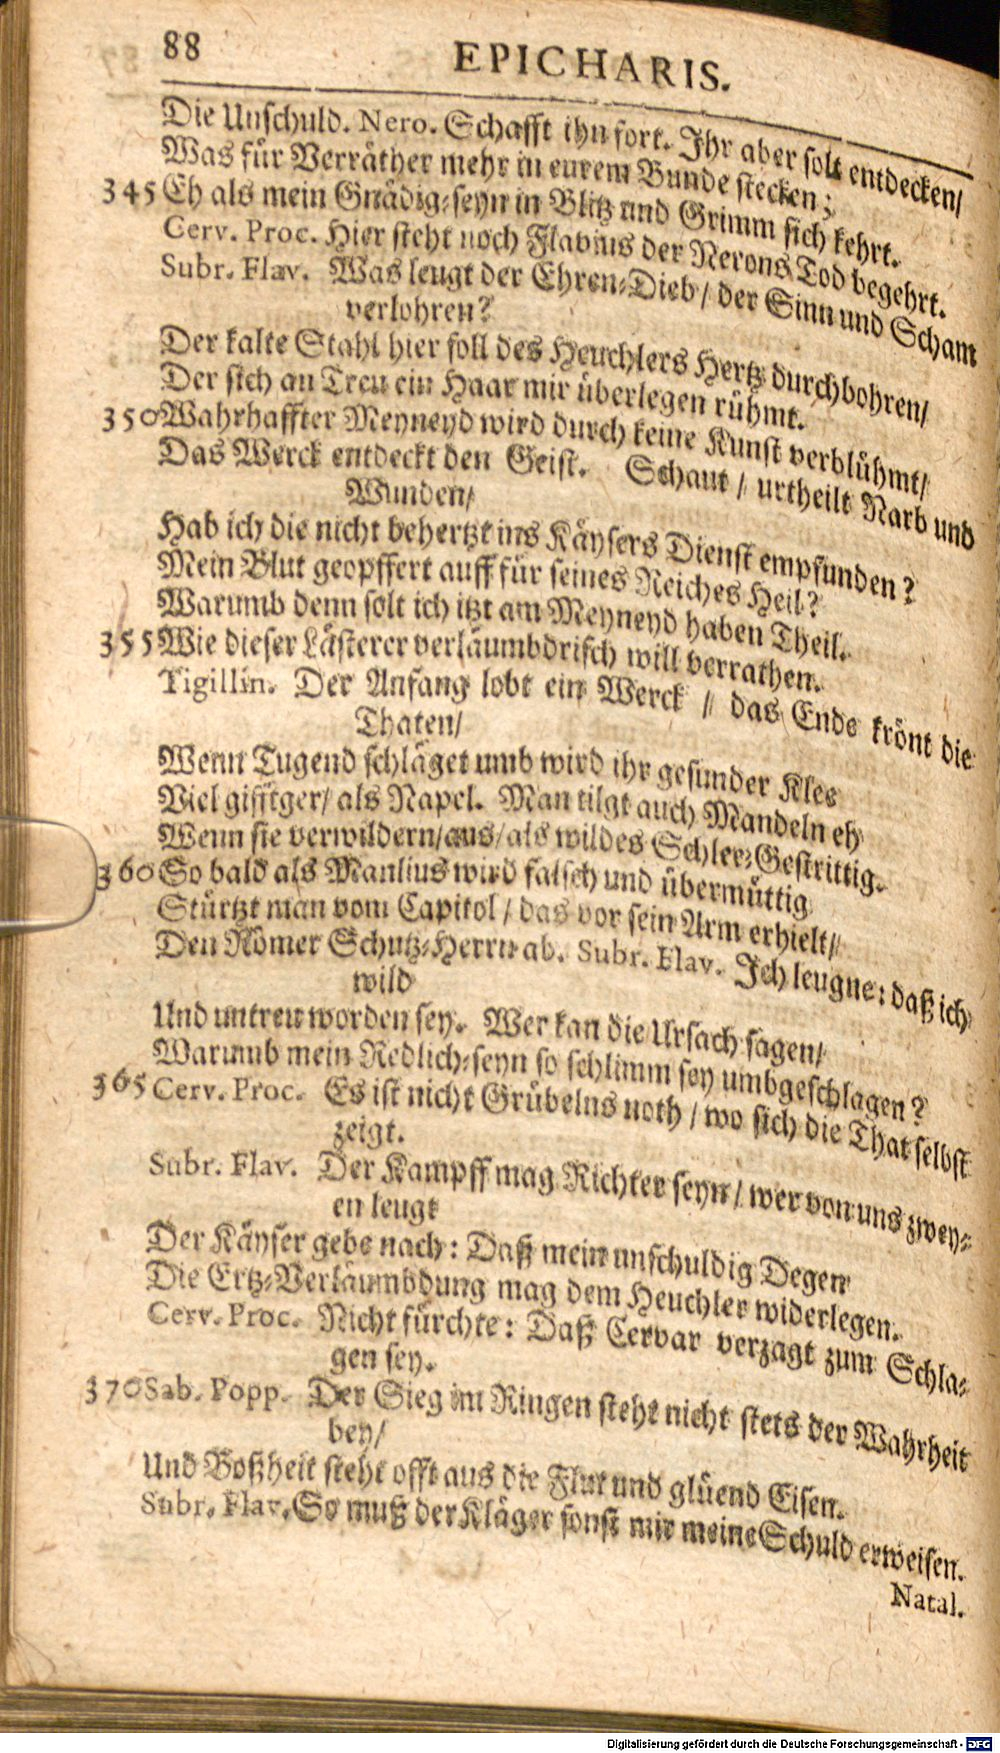 88
EPICHARIS.
Die Unschuld. Nero. Schafft ihn fort. Ihr aber solt entdecken/
Was für Verräther mehr in eurem Bunde stecken;
345 Eh als mein Gnädig-seyn in Blitz und Grimm sich kehrt.
Cerv. Proc. Hier steht noch Flavius der Nerons Tod begehrt.
Subr. Flav. Was leugt der Ehren-Dieb / der Sinn und Scham
verlohren?
Der kalte Stahl hier soll des Heuchlers Hertz durchbohren/
Der sich an Treu ein Haar mir überlegen rühmt.
350 Wahrhaffter Meyneyd wird durch keine Kunst verblühmt/
Das Werck entdeckt den Geist. Schaut / urtheilt Narb und
Wunden/
Hab ich die nicht behertzt ins Käysers Dienst empfunden?
Mein Blut geopffert auff für seines Reiches Heil?
Warumb denn solt ich itzt am Meyneyd haben Theil.
355 Wie dieser Lästerer verläumbdrisch will verrathen.
Tigillin. Der Anfang lobt ein Werck / das Ende krönt die
Thaten/
Wenn Tugend schläget umb wird ihr gesunder Klee
Viel gifftger/ als Napel. Man tilgt auch Mandeln eh
Wenn sie verwildern/aus/als wildes Schlee-Gestrittig.
360 So bald als Manlius wird falsch und übermüttig
Stürtzt man vom Capitol / das vor sein Arm erhielt/
Den Römer Schutz-Herrn ab. Subr. Flav. Ich leugne: daß ich
wild
Und untreu worden sey. Wer kan die Ursach sagen/
Warumb mein Redlich-seyn so schlimm sey umbgeschlagen?
365 Cerv. Proc. Es ist nicht Grübelns noth / wo sich die That selbst
zeigt.
Subr. Flav. Der Kampff mag Richter seyn / wer von uns zwey-
en leugt
Der Käyser gebe nach: Daß mein unschuldig Degen
Die Ertz-Verläumbdung mag dem Heuchler widerlegen.
Cerv. Proc. Nicht fürchte: Daß Cervar verzagt zum Schla-
gen sey.
370 Sab. Popp. Der Sieg im Ringen steht nicht stets der Wahrheit
bey/
Und Boßheit steht offt aus die Flut und glüend Eisen.
Subr. Flav. So muß der Kläger sonst mir meine Schuld erweisen.
Natal.
Digitalisierung gefördert durch die Deutsche Forschungsgemeinschaft - DFG